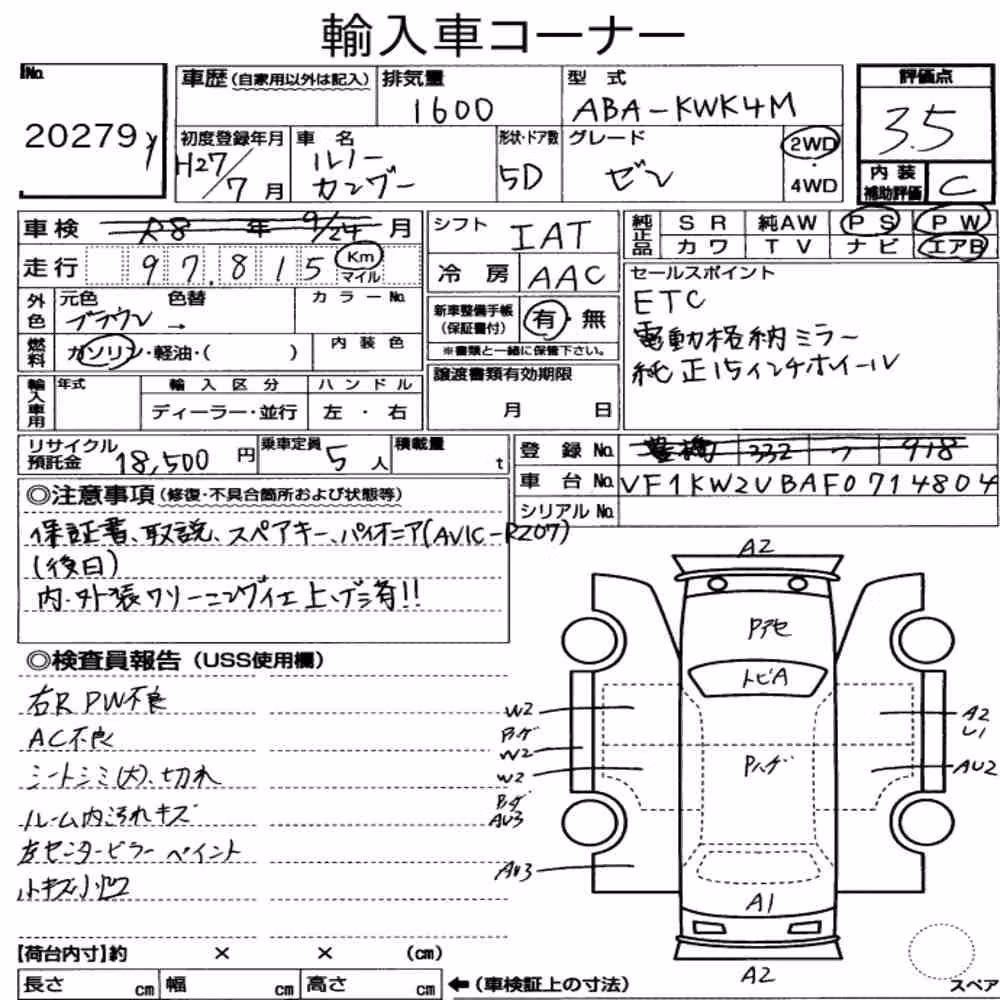 輸入車コーナー
No.
20279
車歴(自家用以外は記入)
排気量
1600
型式
ABA-KWK4M
評価点
3.5
初度登録年月
H27/7月
車名
ルノー
カングー
形状・ドア数
5D
グレード
ゼン
2WD
・
4WD
内装
補助評価
C
車検 R8年 9/24月
シフト
IAT
純正品
SR 純AW PS PW
カワ TV ナビ エアB
走行 97,815 Km
マイル
冷房
AAC
セールスポイント
ETC
電動格納ミラー
純正15インチホイール
外色
元色 色替
ブラウン →
カラーNo.
新車整備手帳
(保証書付)
有・無
※書類と一緒に保管下さい。
燃料
ガソリン・軽油・( )
内装色
輸入車用
年式
輸入区分
ディーラー・並行
ハンドル
左・右
譲渡書類有効期限
月 日
リサイクル
預託金
18,500円
乗車定員
5人
積載量
t
登録No. 豊橋 332 フ 918
車台No. VF1KW2UBAF0714804
シリアルNo.
◎注意事項(修復・不具合箇所および状態等)
保証書、取説、スペアキー、パイオニア(AVIC-RZ07)
(後日)
内・外装クリーニング仕上げ済!!
◎検査員報告(USS使用欄)
右R PW不良
AC不良
シートシミ(大)、切れ
ルーム内汚れキズ
左センターピラーペイント
小キズ小凹
A2
Pアセ
トビA
W2
Pハゲ
W2
W2
Pハゲ
AU3
AU3
Pハゲ
A2
U1
AU2
A1
A2
スペア
【荷台内寸】約 × × (cm)
長さ cm 幅 cm 高さ cm ←(車検証上の寸法)